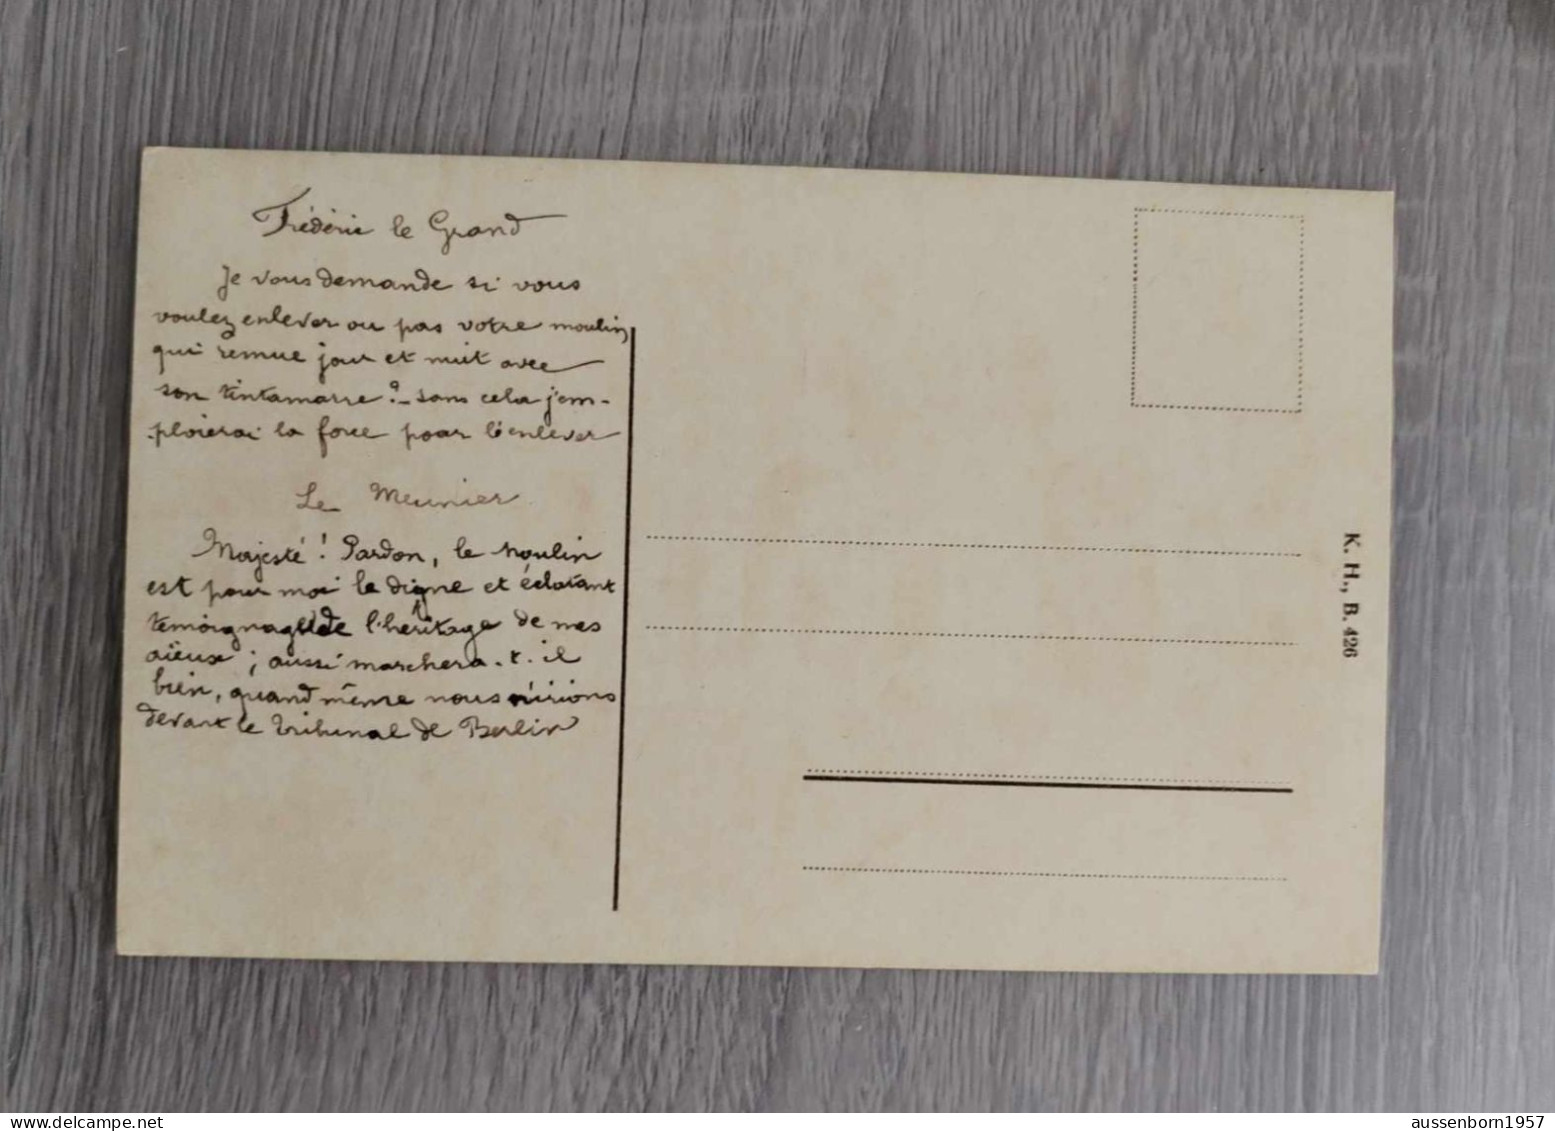 Frédéric le Grand
Je vous demande si vous
voulez enlever ou pas votre moulin,
qui remue jour et nuit avec
son tintamarre ? - sans cela j'em-
ploierai la force pour l'enlever
Le Meunier
Majesté ! Pardon, le moulin
est pour moi le digne et éclatant
témoignage de l'héritage de mes
aïeux ; aussi marchera-t-il
bien, quand même nous irions
devant le tribunal de Berlin
K. H., B. 426
delcampe.net
aussenborn1957